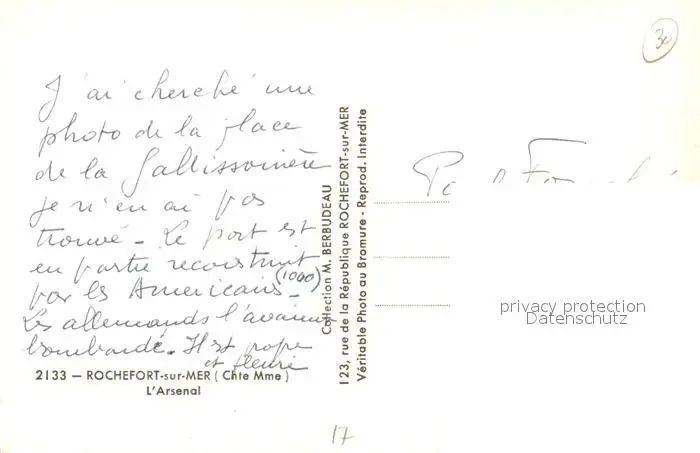 J'ai cherché une
photo de la place
de la Gallissonière
je n'en ai pas
trouvé - Le port est
en partie reconstruit
par les Americains - (1000)
Les allemands l'avaient
bombardé. Il est propre
et fleuri
2133 — ROCHEFORT-sur-MER ( Chte Mme )
L'Arsenal
Collection M. BERBUDEAU
123, rue de la République ROCHEFORT-sur-MER
Véritable Photo au Bromure - Reprod. Interdite
30
privacy protection
Datenschutz
17